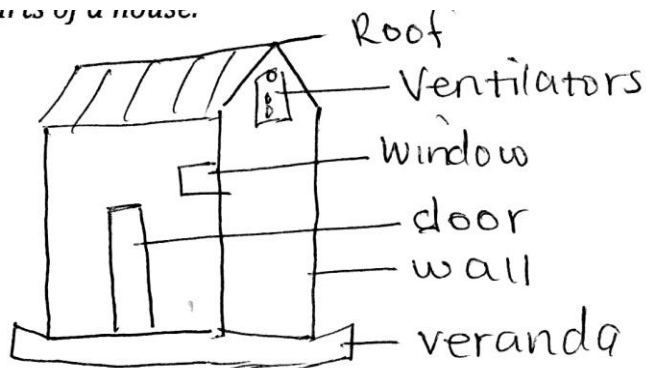 arts of a house.
Roof
Ventilators
Window
door
wall
veranda